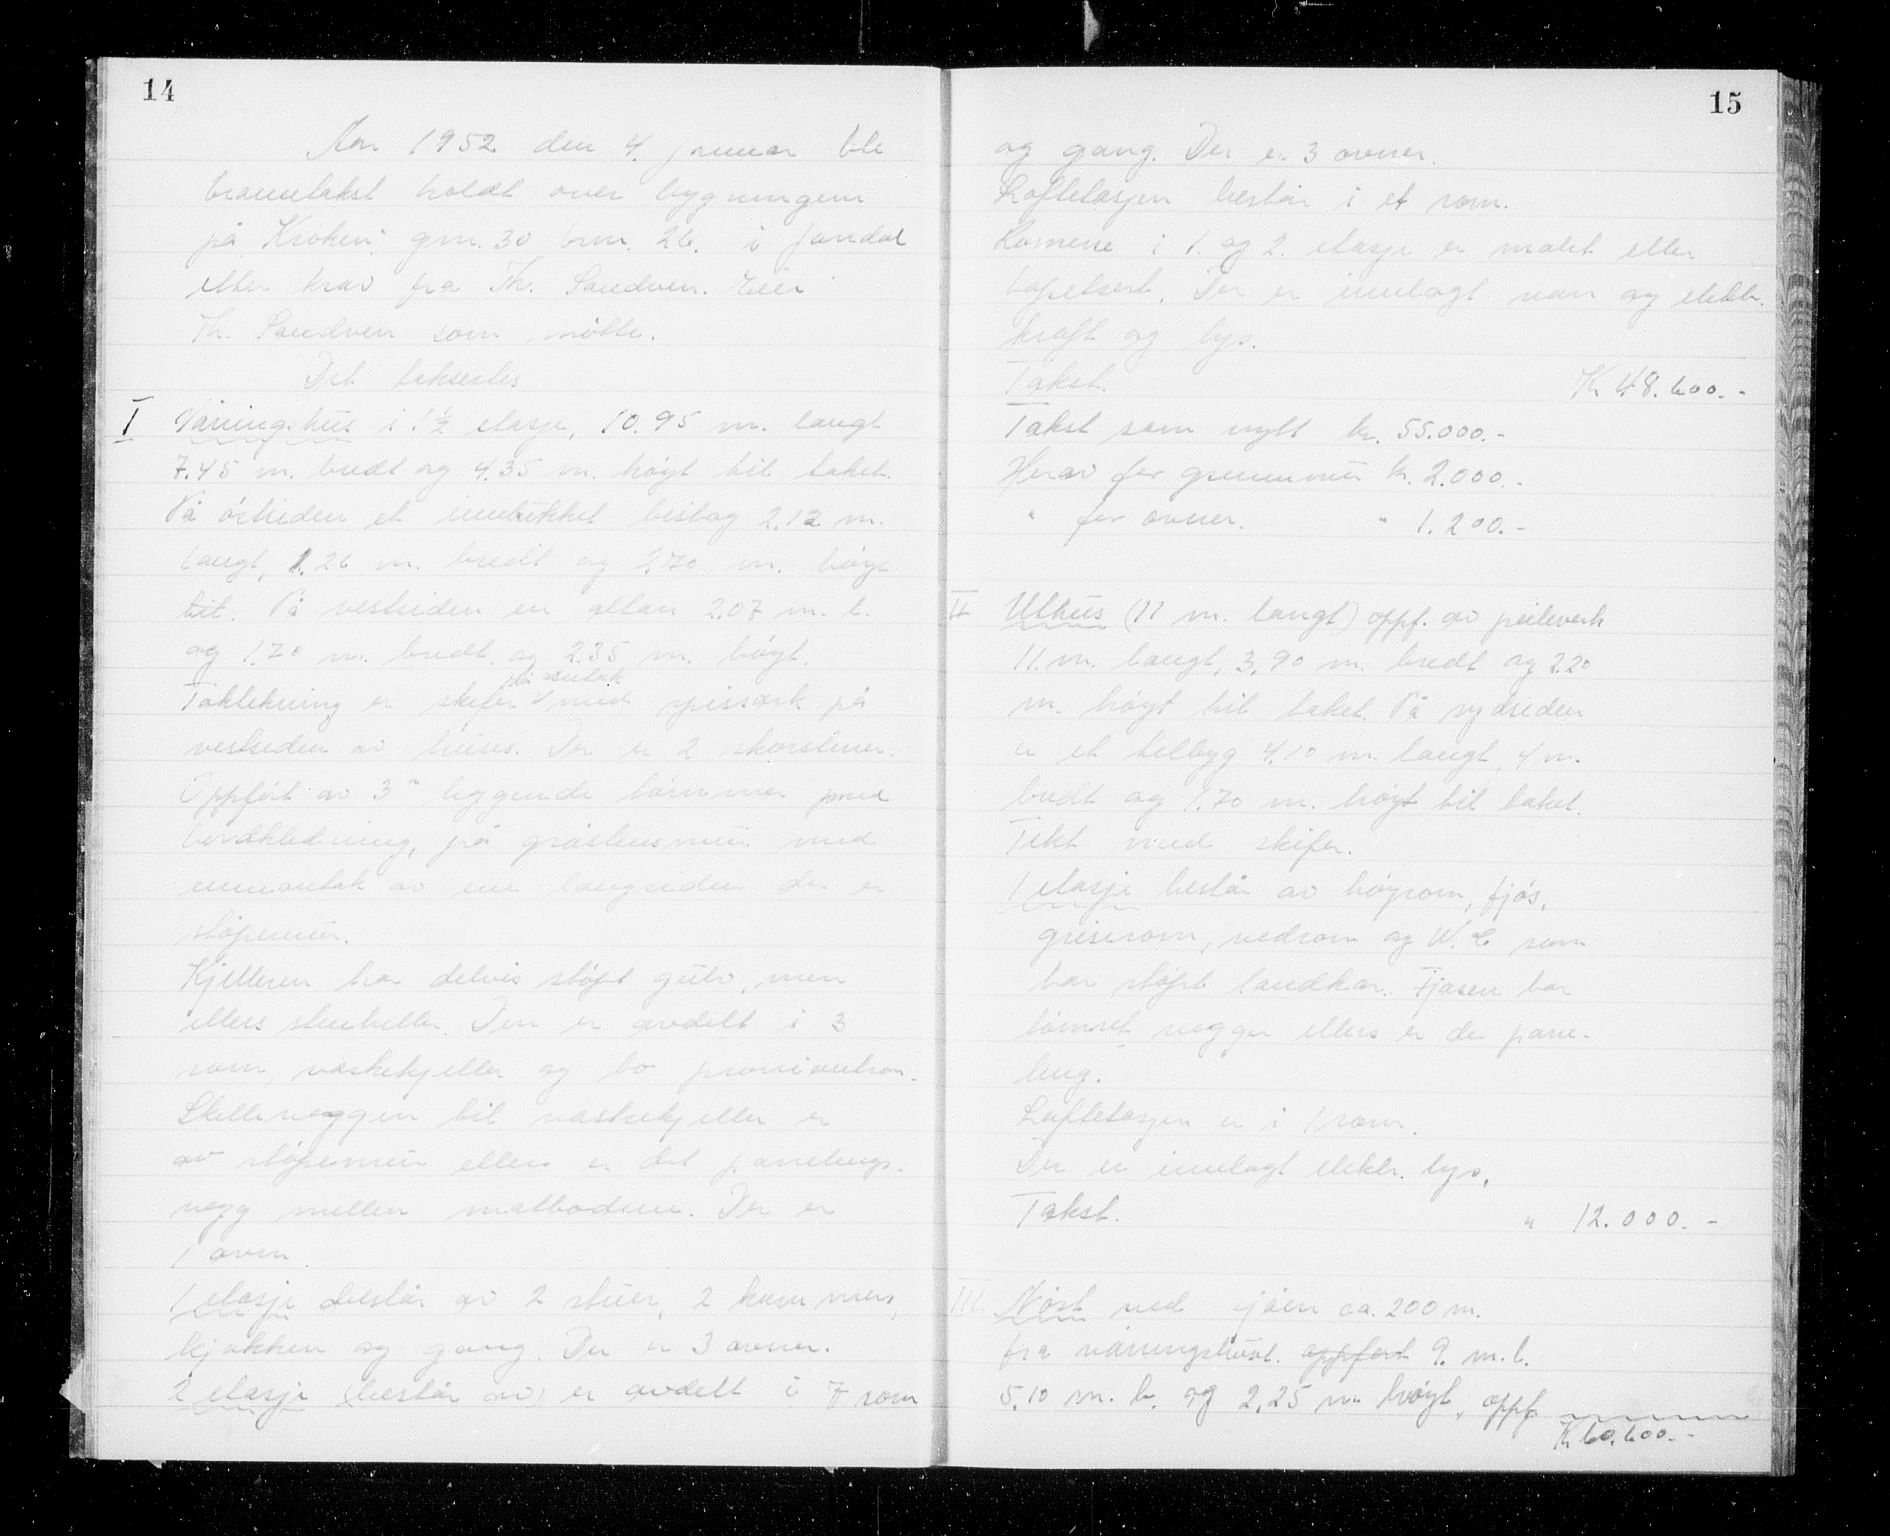 14
Aar 1952 den 4. januar ble
branntakst holdt over bygningene
på "Kroken" gnr. 30 brn. 26. i Jondal
etter krav fra Th. Sandven. Eier
Th. Sandven som møtte.
Det taksertes
I Våningshus i 1½ etasje, 10.95 m. langt
7.45 m. bredt og 4.35 m. høyt til taket.
På østsiden et innbukket bislag 2.12 m.
langt, 1.26 m. bredt og 2.70 m. høyt
til. På vestsiden en altan 2.07 m. l.
og 1.70 m. bredt og 2.35 m. høyt.
Taktekning er skifer med spissark på
vestsiden av huset. Der er 2 skorstener.
Oppført av 3" liggende tømmer med
bordkledning, på gråstensmur med
unnantak av ene langsiden der er
støpemur.
Kjelleren har delvis støpt gulv, men
ellers stenheller. Den er avdelt i 3
rom, vaskekjeller og to proviantrom.
Skilleveggen til vaskekjeller er
av støpemur ellers er det panelings-
vegg mellem matbodene. Der er
1 ovn
1 etasje består av 2 stuer, 2 kammers,
kjøkken og gang. Der er 3 ovner.
2 etasje (består av) er avdelt i 7 rom
15
og gang. Der er 3 ovner.
Loftetasjen består i et rom.
Romene i 1. og 2. etasje er malet eller
tapetsert. Der er innlagt vann og elektr.
kraft og lys.
Takst. Kr 48.600.-
Takst som nytt kr. 55.000.-
Herav for grunnmur kr. 2.000.-
" for ovner. " 1.200.-
II Uthus (11 m. langt) oppf. av reisverk
11. m. langt, 3.90 m. bredt og 2.20
m. høyt til taket. På sydsiden
er et tilbygg 4.10 m. langt, 4 m.
bredt og 1.70 m. høyt til taket.
Tekt med skifer.
1 etasje består av høyrom, fjøs,
griserom, vedrom og W.C som
har støpt landkar. Fjøsen har
tømret vegger ellers er de pane-
ling.
Loftetasjen er i 1 rom.
Der er innlagt elektr. lys.
Takst. " 12.000.-
III Nøst ved sjøen ca. 200 m.
fra våningshuset. oppført 9. m. l.
5.10 m. b. og 2.25 m høyt, oppf.
Kr 60.600.-